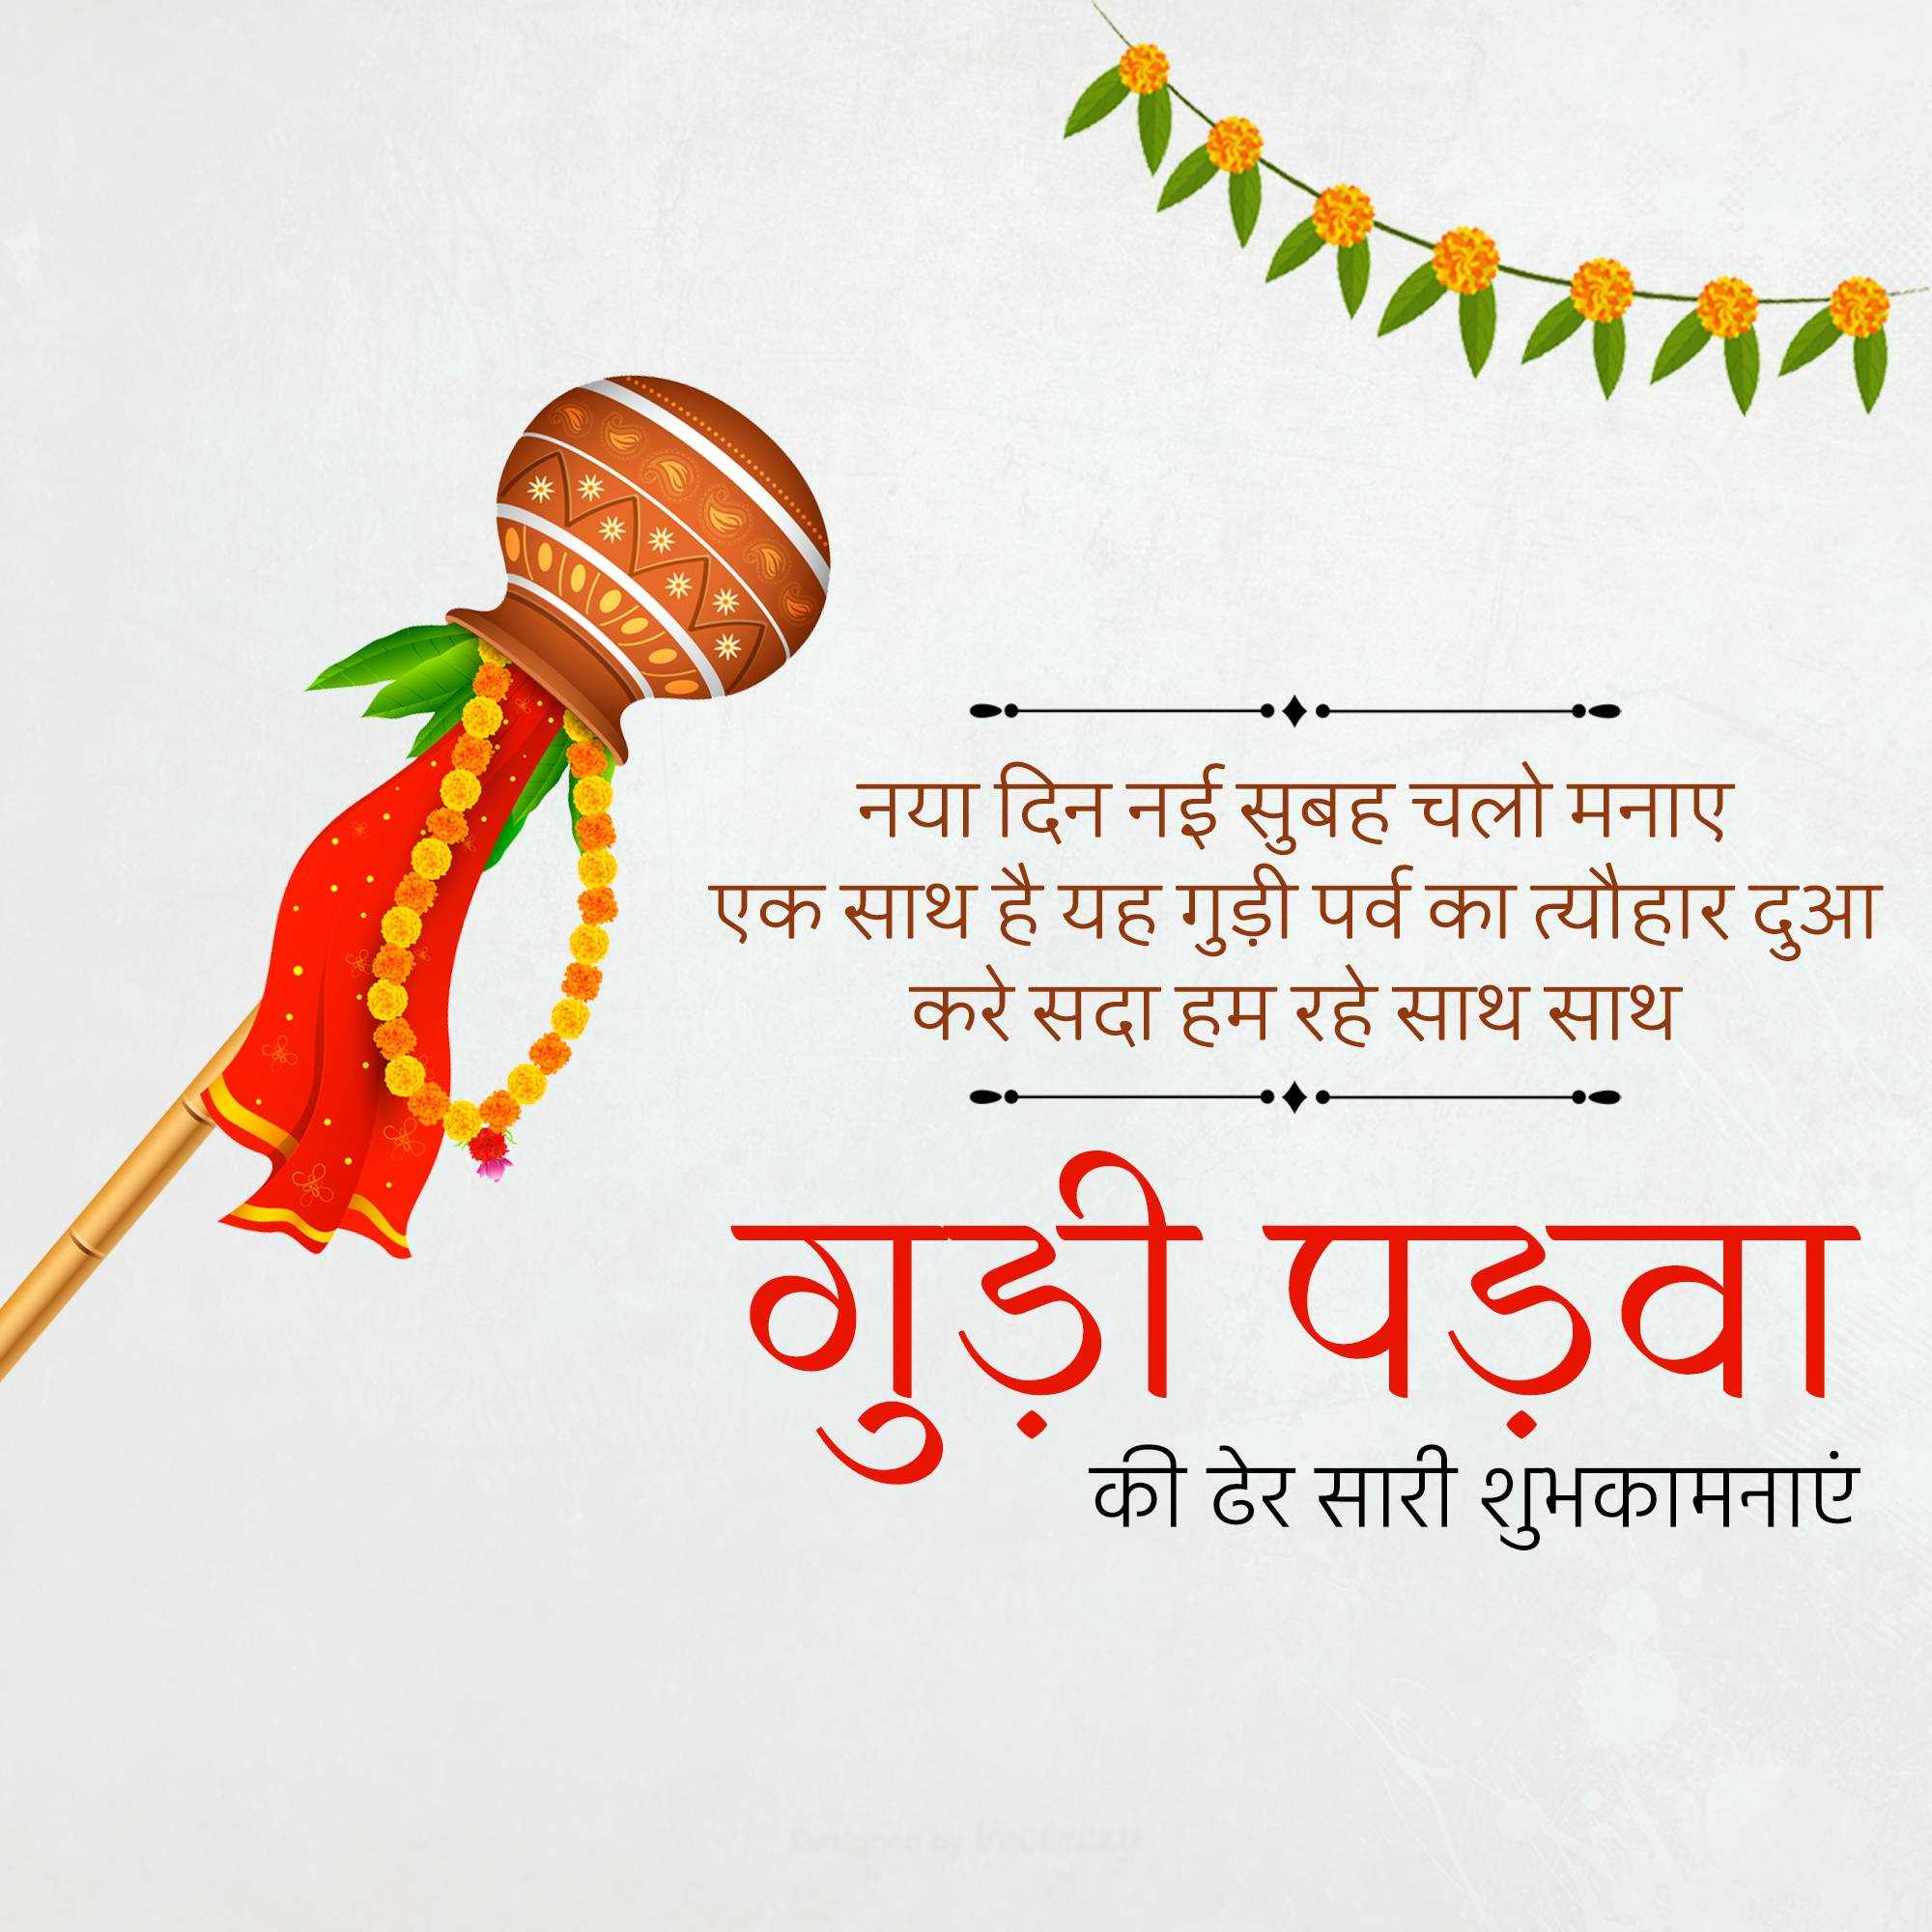 नया दिन नई सुबह चलो मनाए
एक साथ है यह गुड़ी पर्व का त्यौहार दुआ
करे सदा हम रहे साथ साथ
गुड़ी पड़वा
की ढेर सारी शुभकामनाएं